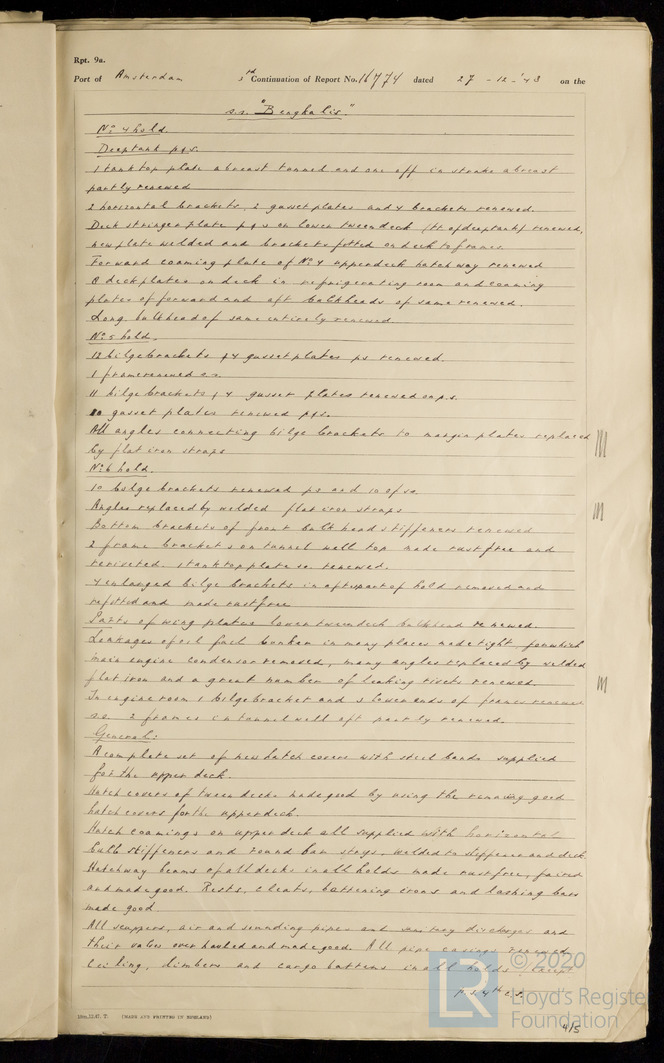 Rpt. 9a.
Port of Amsterdam 3rd Continuation of Report No. 16774 dated 27 - 12 - '43 on the
s.s. "Bengkalis".
No. 4 hold.
Deeptank p&s.
1 tanktop plate abreast tunnel and one off in strake abreast
partly renewed
2 horizontal brackets, 2 gusset plates and 4 brackets renewed.
Deck stringer plate p&s on lower tweendeck (tt. of deeptank) renewed,
new plate welded and brackets fitted on deck to frames
Forward coaming plate of No. 4 upperdeck hatchway renewed
8 deckplates on deck in refrigerating room and coaming
plates of forward and aft bulkheads of same renewed.
Long. bulkhead of same entirely renewed.
No. 5 hold.
12 bilgebrackets & 4 gusset plates ps renewed.
1 frame renewed s.s.
11 bilge brackets & 4 gusset plates renewed on p.s.
10 gusset plates renewed p&s.
All angles connecting bilge brackets to margin plates replaced
by flat iron straps
No. 6 hold.
10 bilge brackets renewed ps and 10 of ss.
Angles replaced by welded flat iron straps
Bottom brackets of front bulkhead stiffeners renewed
2 frame brackets on tunnel well top made rustfree and
reriveted. 1 tanktop plate ss. renewed.
4 enlarged bilge brackets in afterpart of hold removed and
refitted and made rustfree
Parts of wing plates lower tweendeck bulkhead renewed.
Leakages of oil fuel bunker in many places made tight, for which
main engine condensor removed, many angles replaced by welded
flat iron and a great number of leaking rivets renewed.
In engine room 1 bilgebracket and 3 lower ends of frames renewed
s.s. 2 frames in tunnelwell aft partly renewed.
General:
A complete set of new hatch covers with steel bands supplied
for the upper deck.
Hatch covers of tween decks made good by using the remaining good
hatch covers for the upperdeck.
Hatch coamings on upper deck all supplied with horizontal
bulb stiffeners and round bar stays, welded to stiffeners and deck.
Hatchway beams of all decks in all holds made rustfree, faired
and made good. Rests, cleats, battening irons and lashing bars
made good
All scuppers, air and sounding pipes and sanitary discharges and
their valves overhauled and made good. All pipe casings renewed
Ceiling, limbers and cargo battens in all holds except
p.s.
10m.11.47. T. (MADE AND PRINTED IN ENGLAND)
4/5
LR © 2020
Lloyd's Register
Foundation